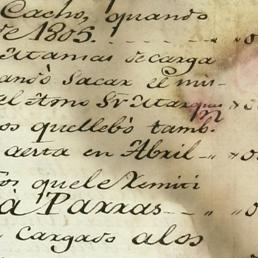 Cacho, quando
de 1805.
Atamias de carga
mandò Sacar el mis-
al Ilmo Sr Marques
os quellebò tamb.
aesta en Abril
To, que le Remiti
a Parras
Cargado a los